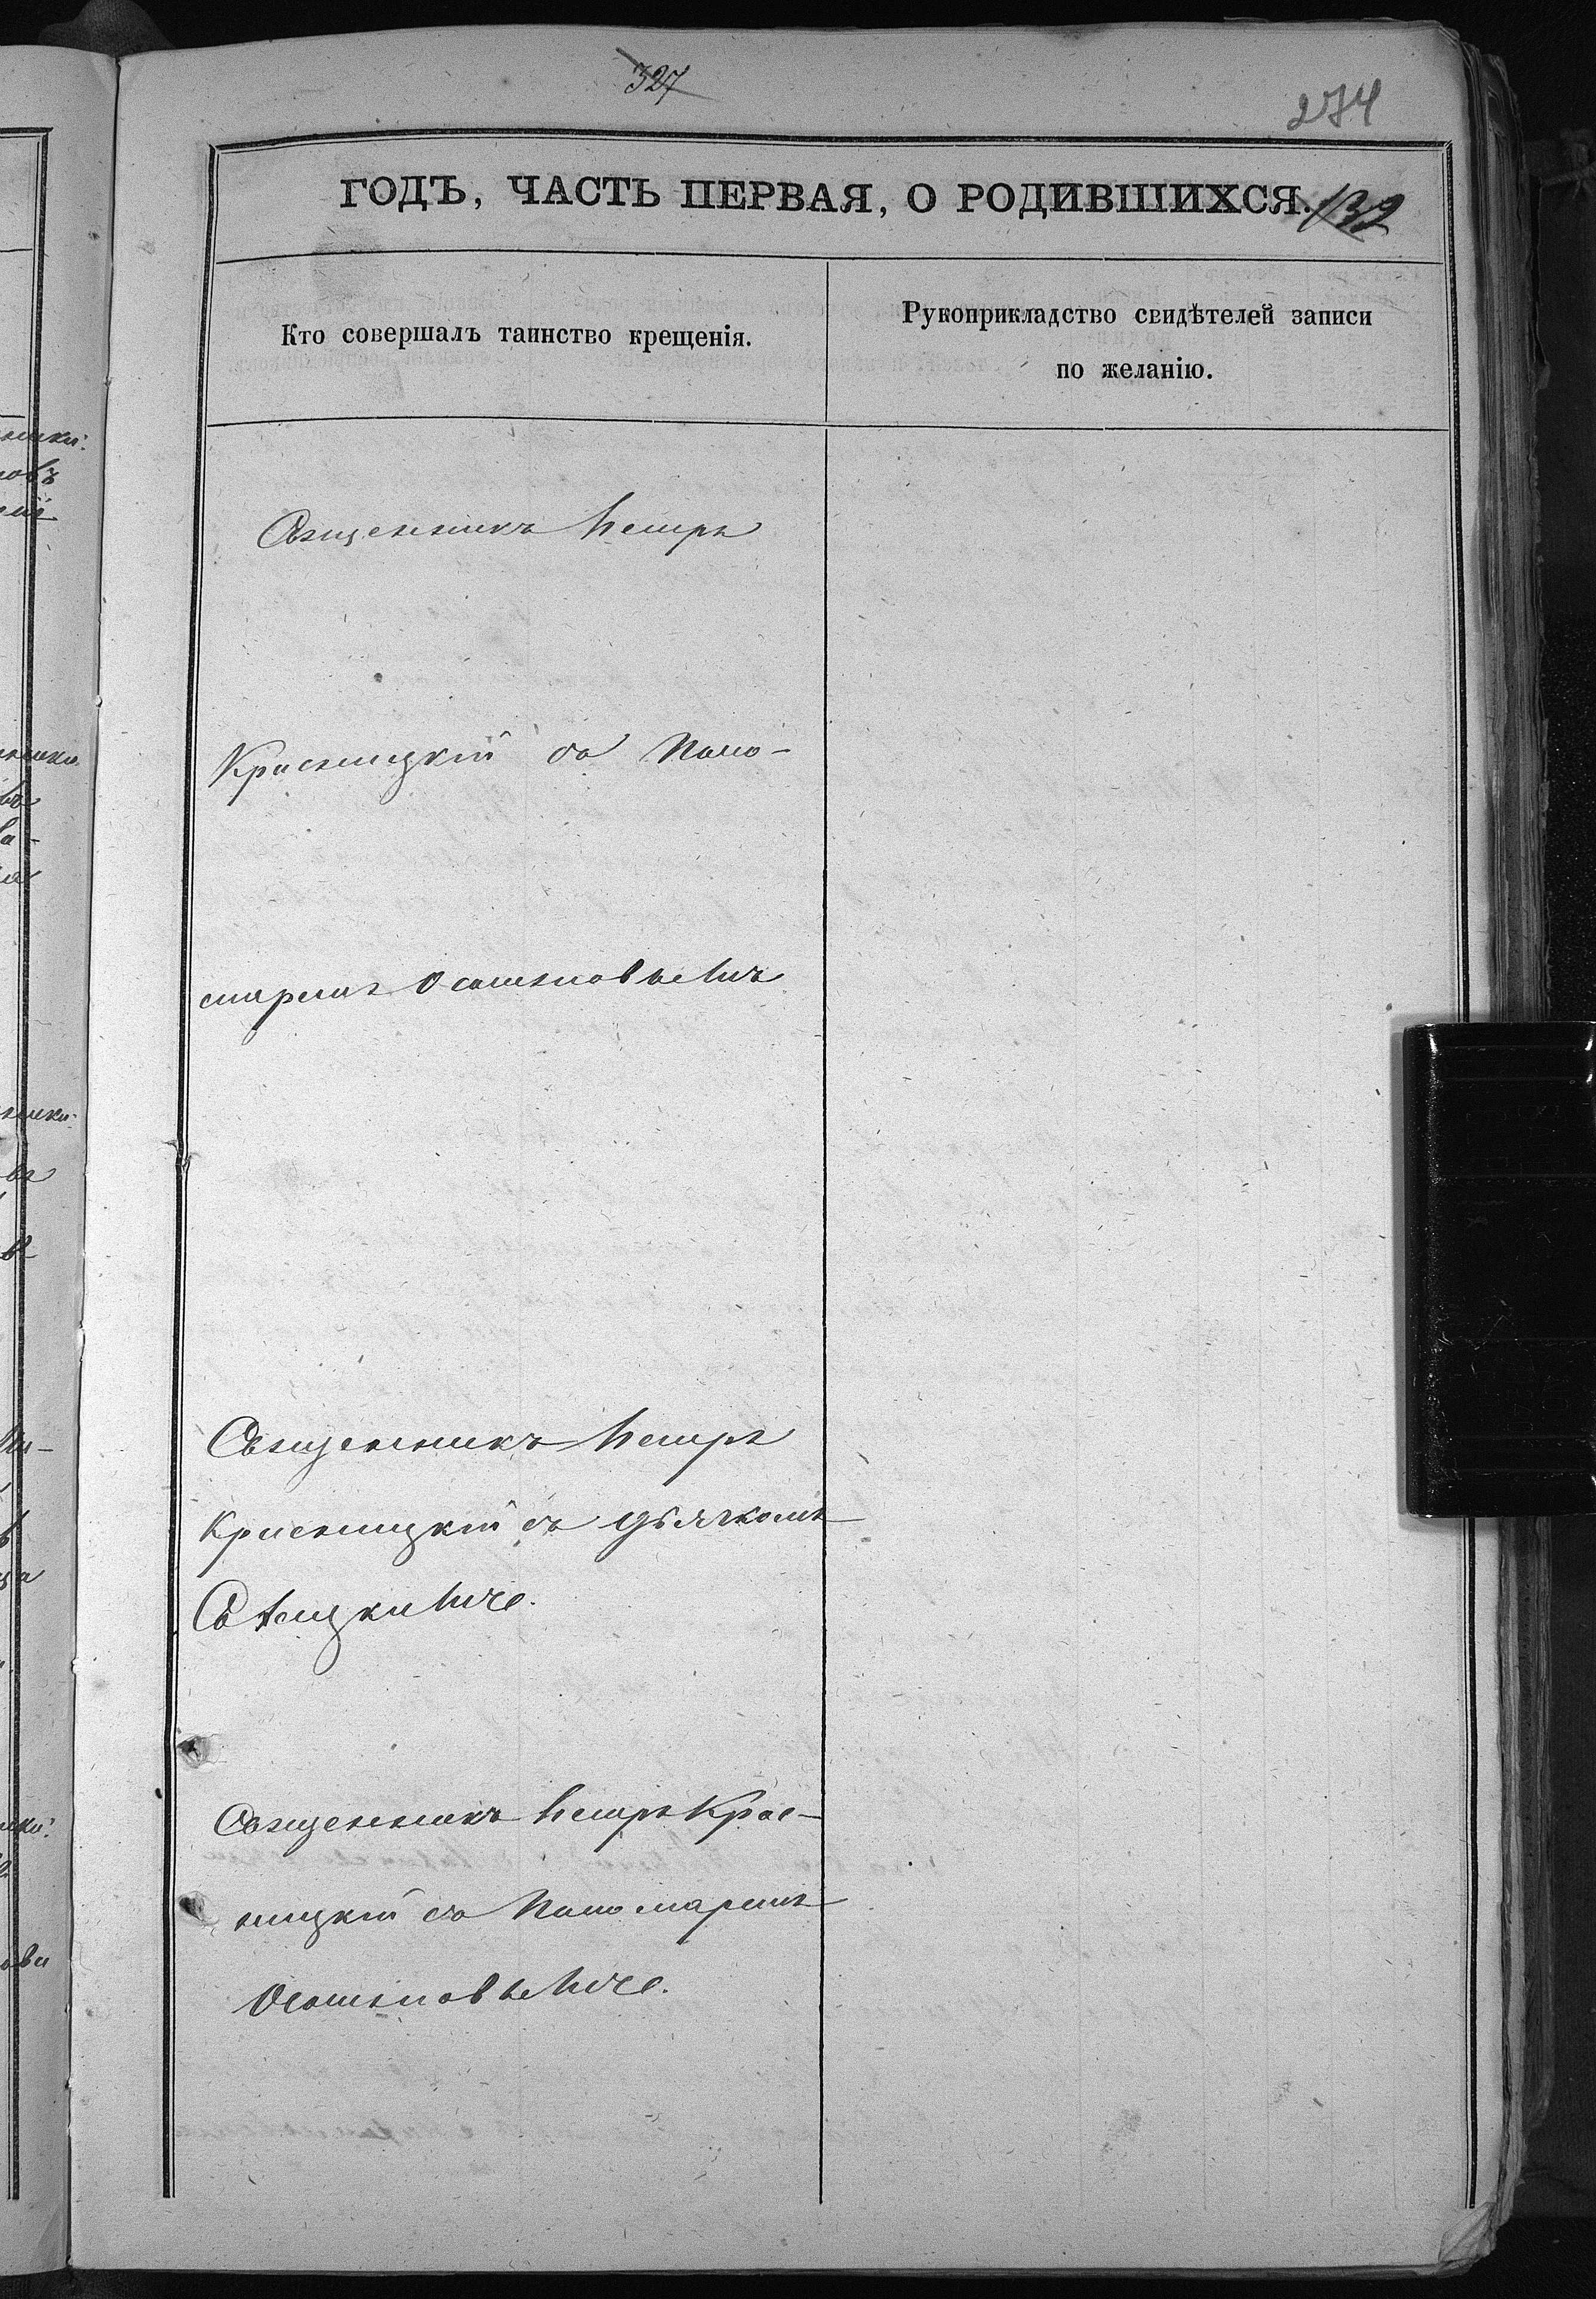 327
274
ГОДЪ, ЧАСТЬ ПЕРВАЯ, О РОДИВШИХСЯ. 132
Кто совершалъ таинство крещенія.
Рукоприкладство свидѣтелей записи
по желанію.
Священникъ Петръ
Красницкій съ Поно-
маремъ
Священникъ Петръ
Красницкій съ дьячкомъ
Священникъ Петръ Крас-
ницкій съ Пономаремъ